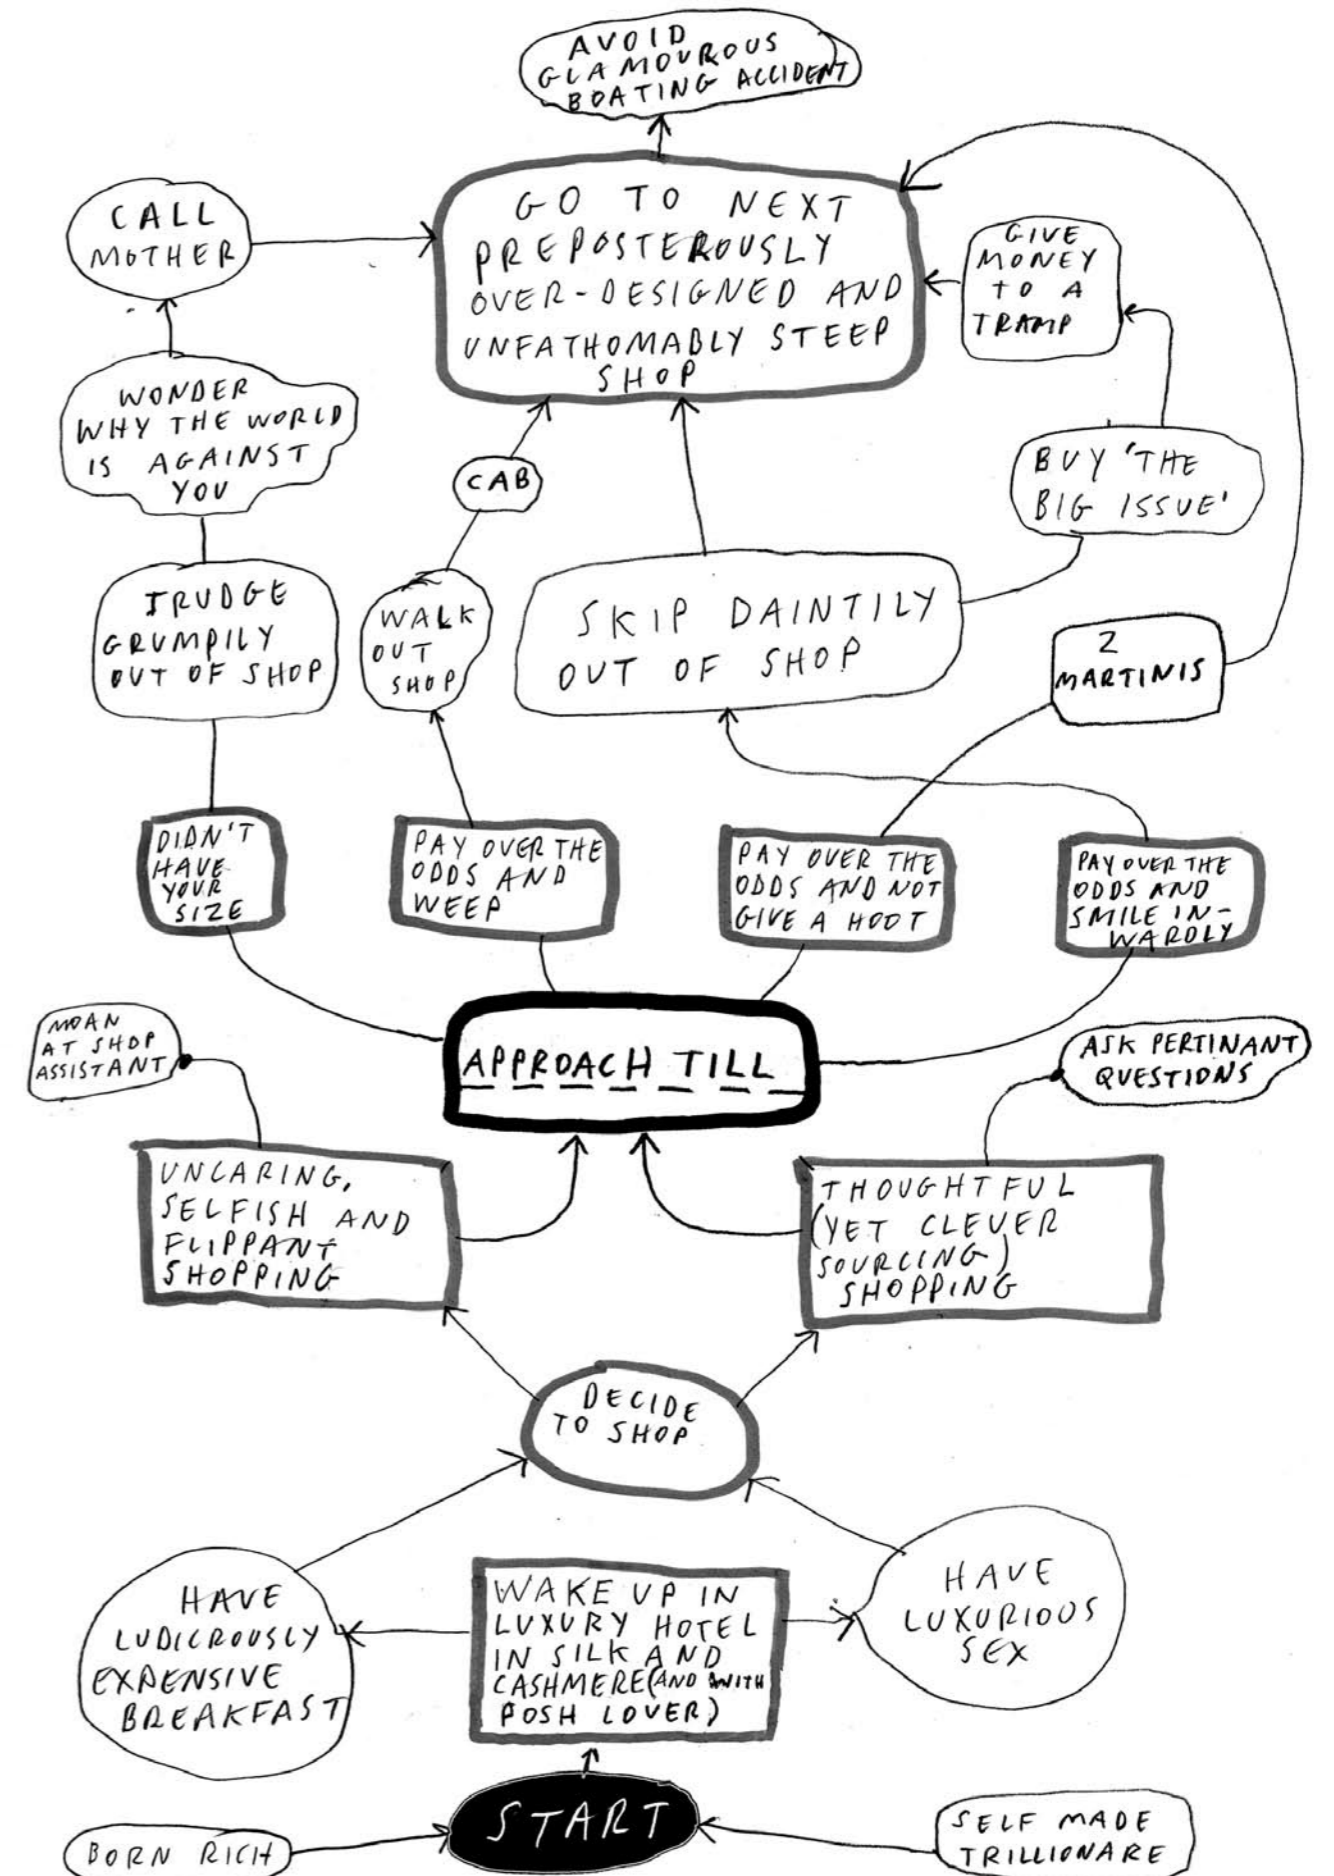 AVOID
GLAMOUROUS
BOATING ACCIDENT
CALL
MOTHER
GO TO NEXT
PREPOSTEROUSLY
OVER-DESIGNED AND
UNFATHOMABLY STEEP
SHOP
GIVE
MONEY
TO A
TRAMP
WONDER
WHY THE WORLD
IS AGAINST
YOU
CAB
BUY 'THE
BIG ISSUE'
TRUDGE
GRUMPILY
OUT OF SHOP
WALK
OUT
SHOP
SKIP DAINTILY
OUT OF SHOP
2
MARTINIS
DIDN'T
HAVE
YOUR
SIZE
PAY OVER THE
ODDS AND
WEEP
PAY OVER THE
ODDS AND NOT
GIVE A HOOT
PAY OVER THE
ODDS AND
SMILE IN-
WARDLY
MOAN
AT SHOP
ASSISTANT
APPROACH TILL
ASK PERTINANT
QUESTIONS
UNCARING,
SELFISH AND
FLIPPANT
SHOPPING
THOUGHTFUL
(YET CLEVER
SOURCING)
SHOPPING
DECIDE
TO SHOP
HAVE
LUDICROUSLY
EXPENSIVE
BREAKFAST
WAKE UP IN
LUXURY HOTEL
IN SILK AND
CASHMERE (AND WITH
POSH LOVER)
HAVE
LUXURIOUS
SEX
START
BORN RICH
SELF MADE
TRILLIONARE